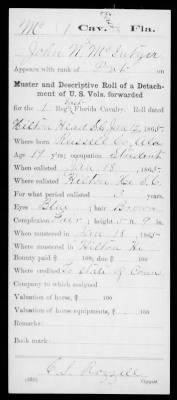 Mc | 1 | Cav. | Fla.
John N. McIntyre
Appears with rank of Pvt on
Muster and Descriptive Roll of a Detach-
ment of U. S. Vols. forwarded
for the 1 Reg't Florida Cavalry. Roll dated
Hilton Head S.C. Jan 12, 1865.
Where born Russell Co, Ala
Age 19 y'rs; occupation Student
When enlisted Jan 18, 1865.
Where enlisted Hilton H. S.C.
For what period enlisted 3 years.
Eyes Blue; hair Brown
Complexion Fair; height 5 ft. 9 in.
When mustered in Jan 18, 1865
Where mustered in Hilton H.
Bounty paid $ 100; due $ 100
Where credited State of Conn
To which company assigned
Valuation of horse, $ 100
Valuation of horse equipments, $ 100
Remarks:
Book mark:
Copyist.